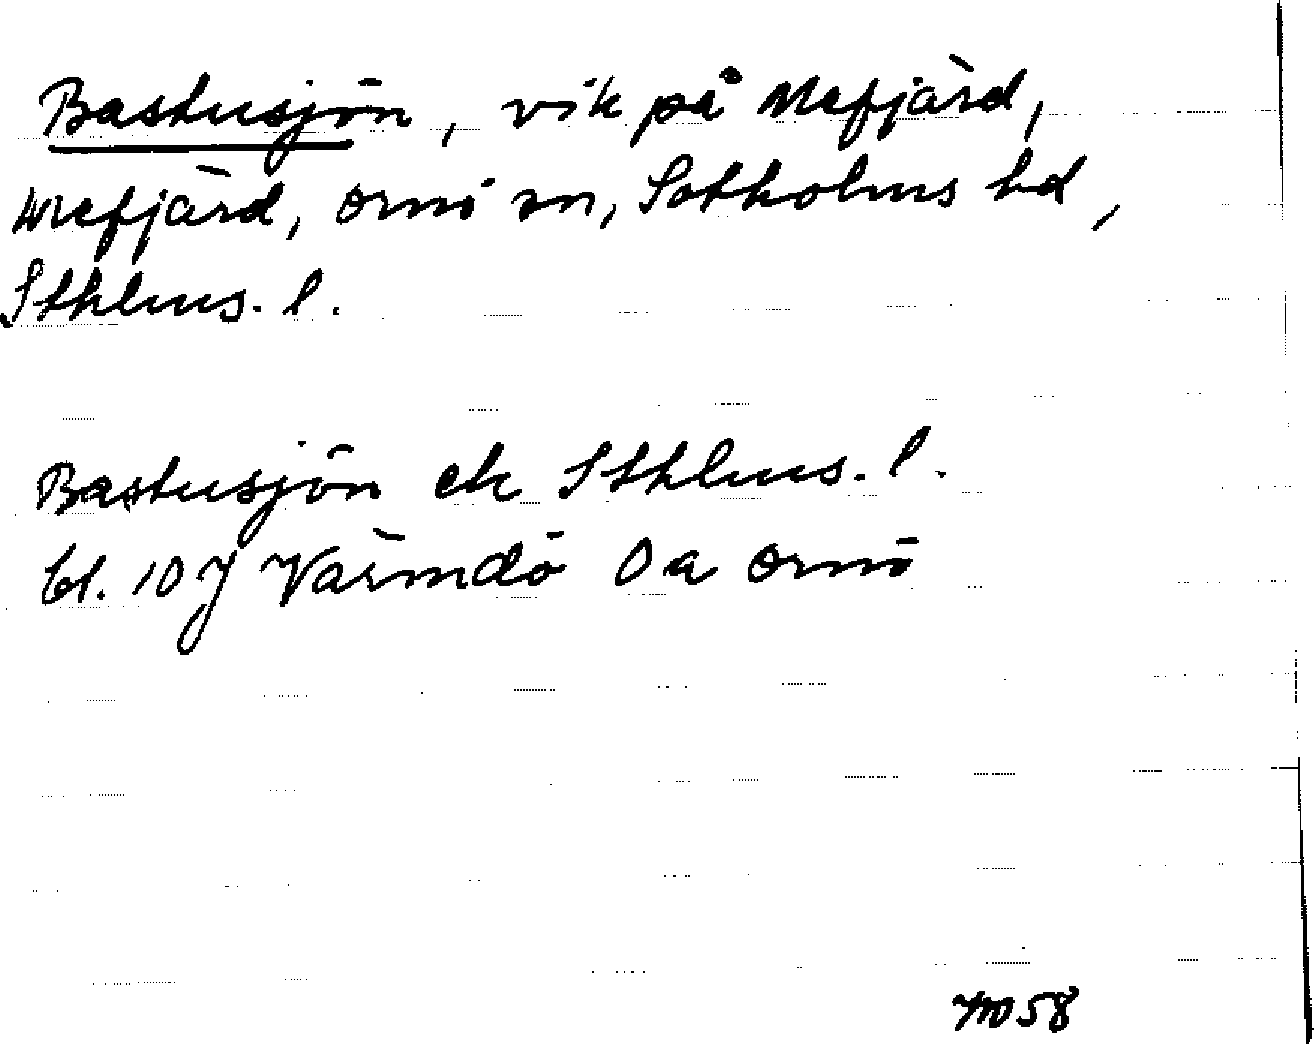 Bastusjön, vik på Mefjärd,
Mefjärd, Ornö sn, Sotholms hd,
Sthlms. l.
Bastusjön ek Sthlms. l.
bl. 10 J Värmdö Oa Ornö
58